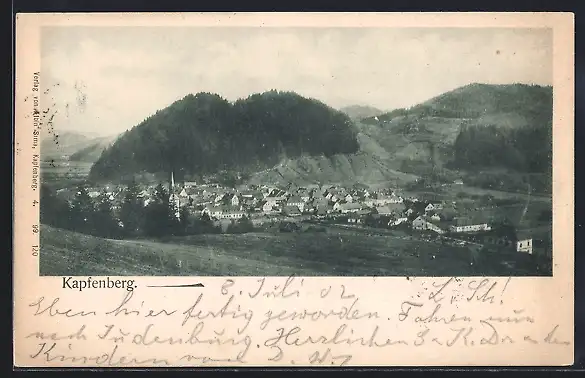 Verlag von Albin Sussa, Kapfenberg. 4. 99. 120
Kapfenberg.
8. Juli 02
L. Sch!
Eben hier fertig geworden. Fahren nun
nach Judenburg. Herzlichen
Kindern vom D.